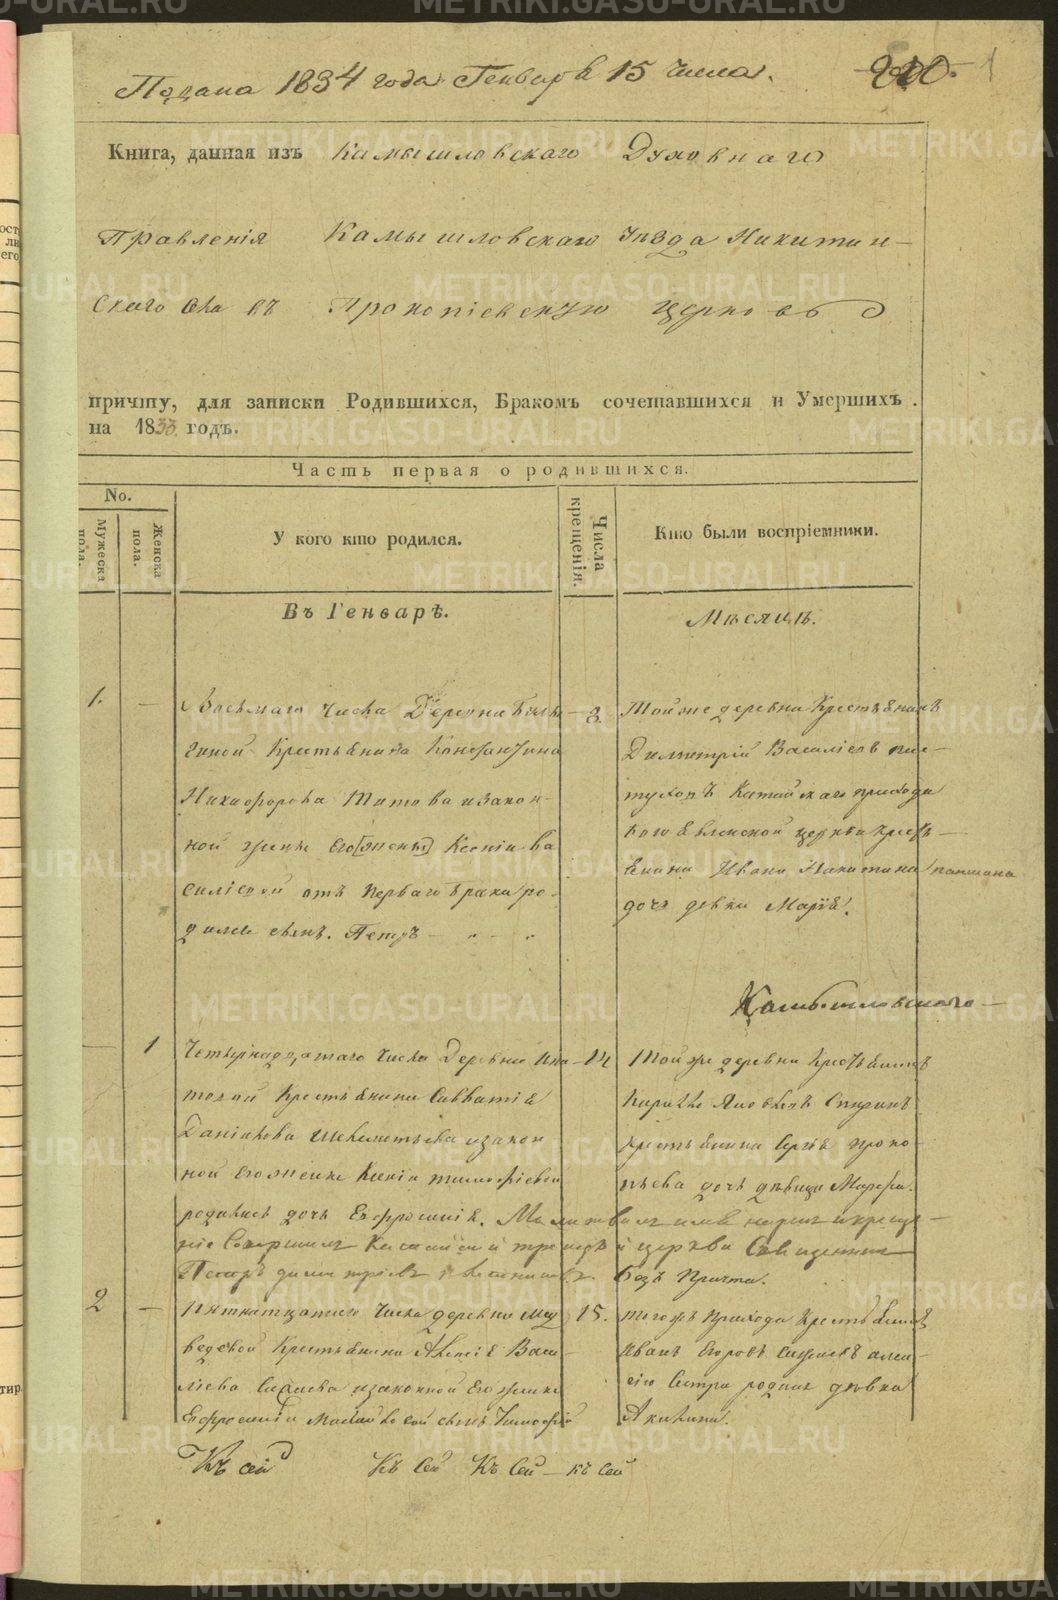 Подана 1834 года Генваря 15 числа.
1
Книга, данная изъ Камышловскаго Духовнаго
Правленія Камышловскаго уѣзда Никитин-
скаго села въ Прокопіевскую церковь
причту, для записки Родившихся, Бракомъ сочетавшихся и Умершихъ
на 1833 годъ.
Часть первая о родившихся.
No.
Мужеска пола.
Женска пола.
У кого кто родился.
Числа крещенія.
Кто были воспріемники.
Въ Генварѣ.
Мѣсяцѣ.
1. — Восьмаго числа Деревни
— 8.
гиной Крестьянина Константина
Никифорова Титова и закон-
ной жены его [жены] Ксеніи Ва
силіевой отъ перваго брака ро-
дился сынъ. Петръ —
Тойже деревни Крестьянинъ
Димитрій Василіевъ пас-
туховъ Катайскаго прихода
Богоявленской церкви крест-
янина Ивана Никитина
дочь девка Марія.
Камышловскаго —
— 1 Четырнадцатаго числа Деревни Ипа-
— 14
товой Крестьянина Савватія
Даніилова и закон
ной его жены Ксеніи Тимофіевой
родилась дочь Евфросинія.
Тойже деревни Крестьянинъ
Кирилъ Яковлевъ Спиринъ
крестьянина Сергѣя Проко-
пьева дочь дѣвица Марфа.
Молитвилъ имя нарекъ и креще-
ніе совершилъ Катайской троицкой церкви Священникъ
Петръ Димитріевъ безъ Причта.
2 — Пятнатцатаго числа деревни Мед
15.
ведевой Крестьянина Алексія Васи-
лієва и законной его жены
Евфросиніи сынъ Тимофей
тогожъ Прихода Крестьянинъ
Иванъ Егоровъ
его Сестра родная дѣвка
Акилина.
Къ сей Къ Сей Къ Сей — къ сей
METRIKI.GASO-URAL.RU